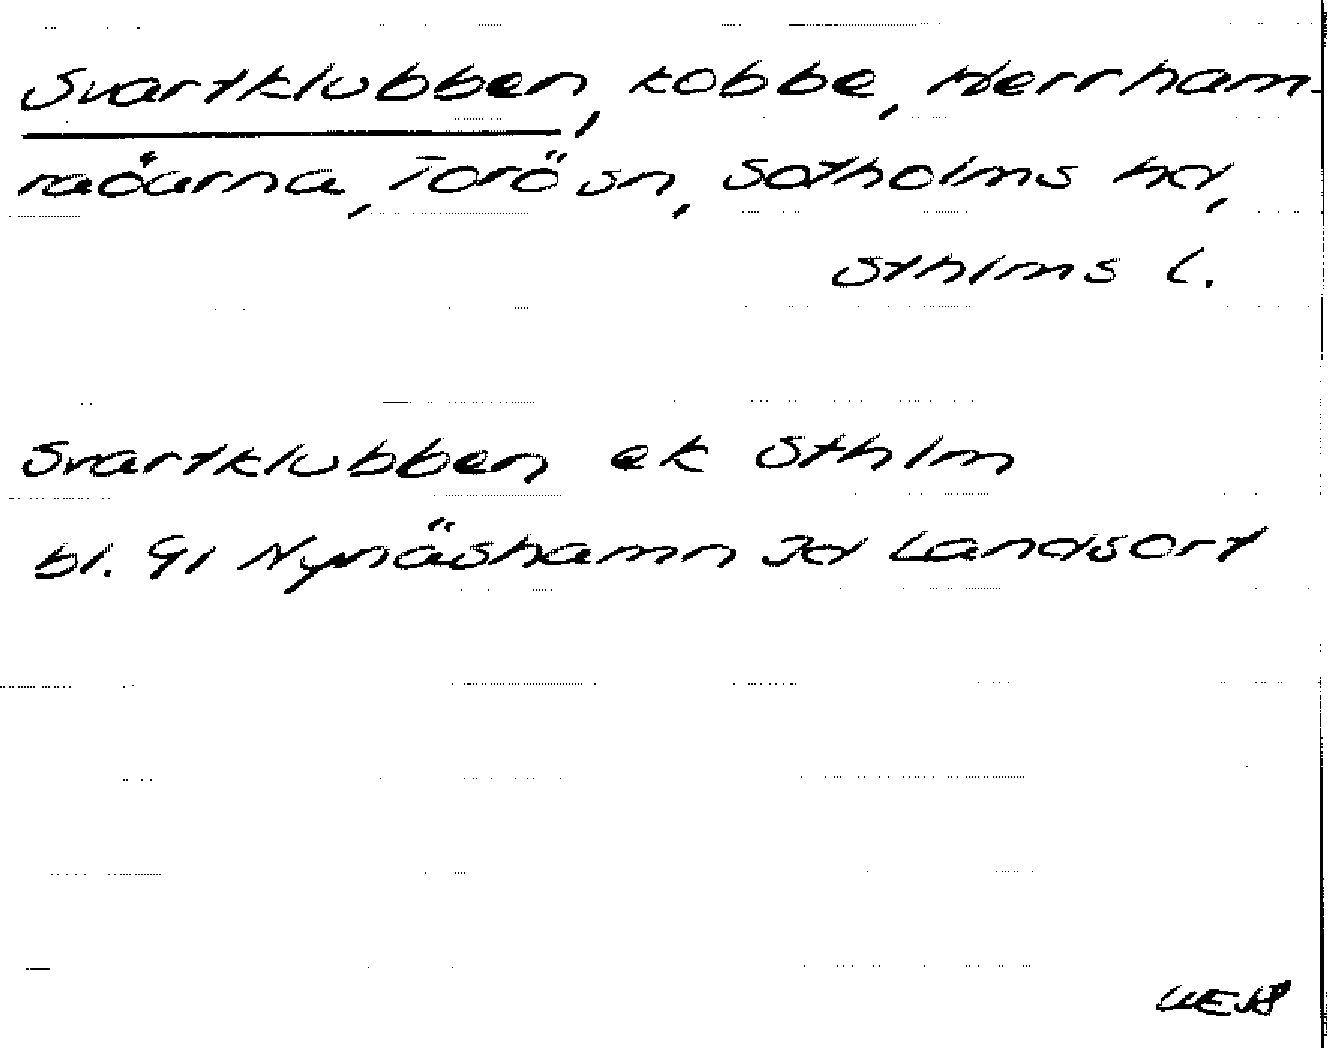 Svartklubben, kobbe, Herrham-
raöarna, Torö sn, Sotholms hd,
Sthlms l.
Svartklubben ek Sthlm
bl. 91 Nynäshamn Jd Landsort